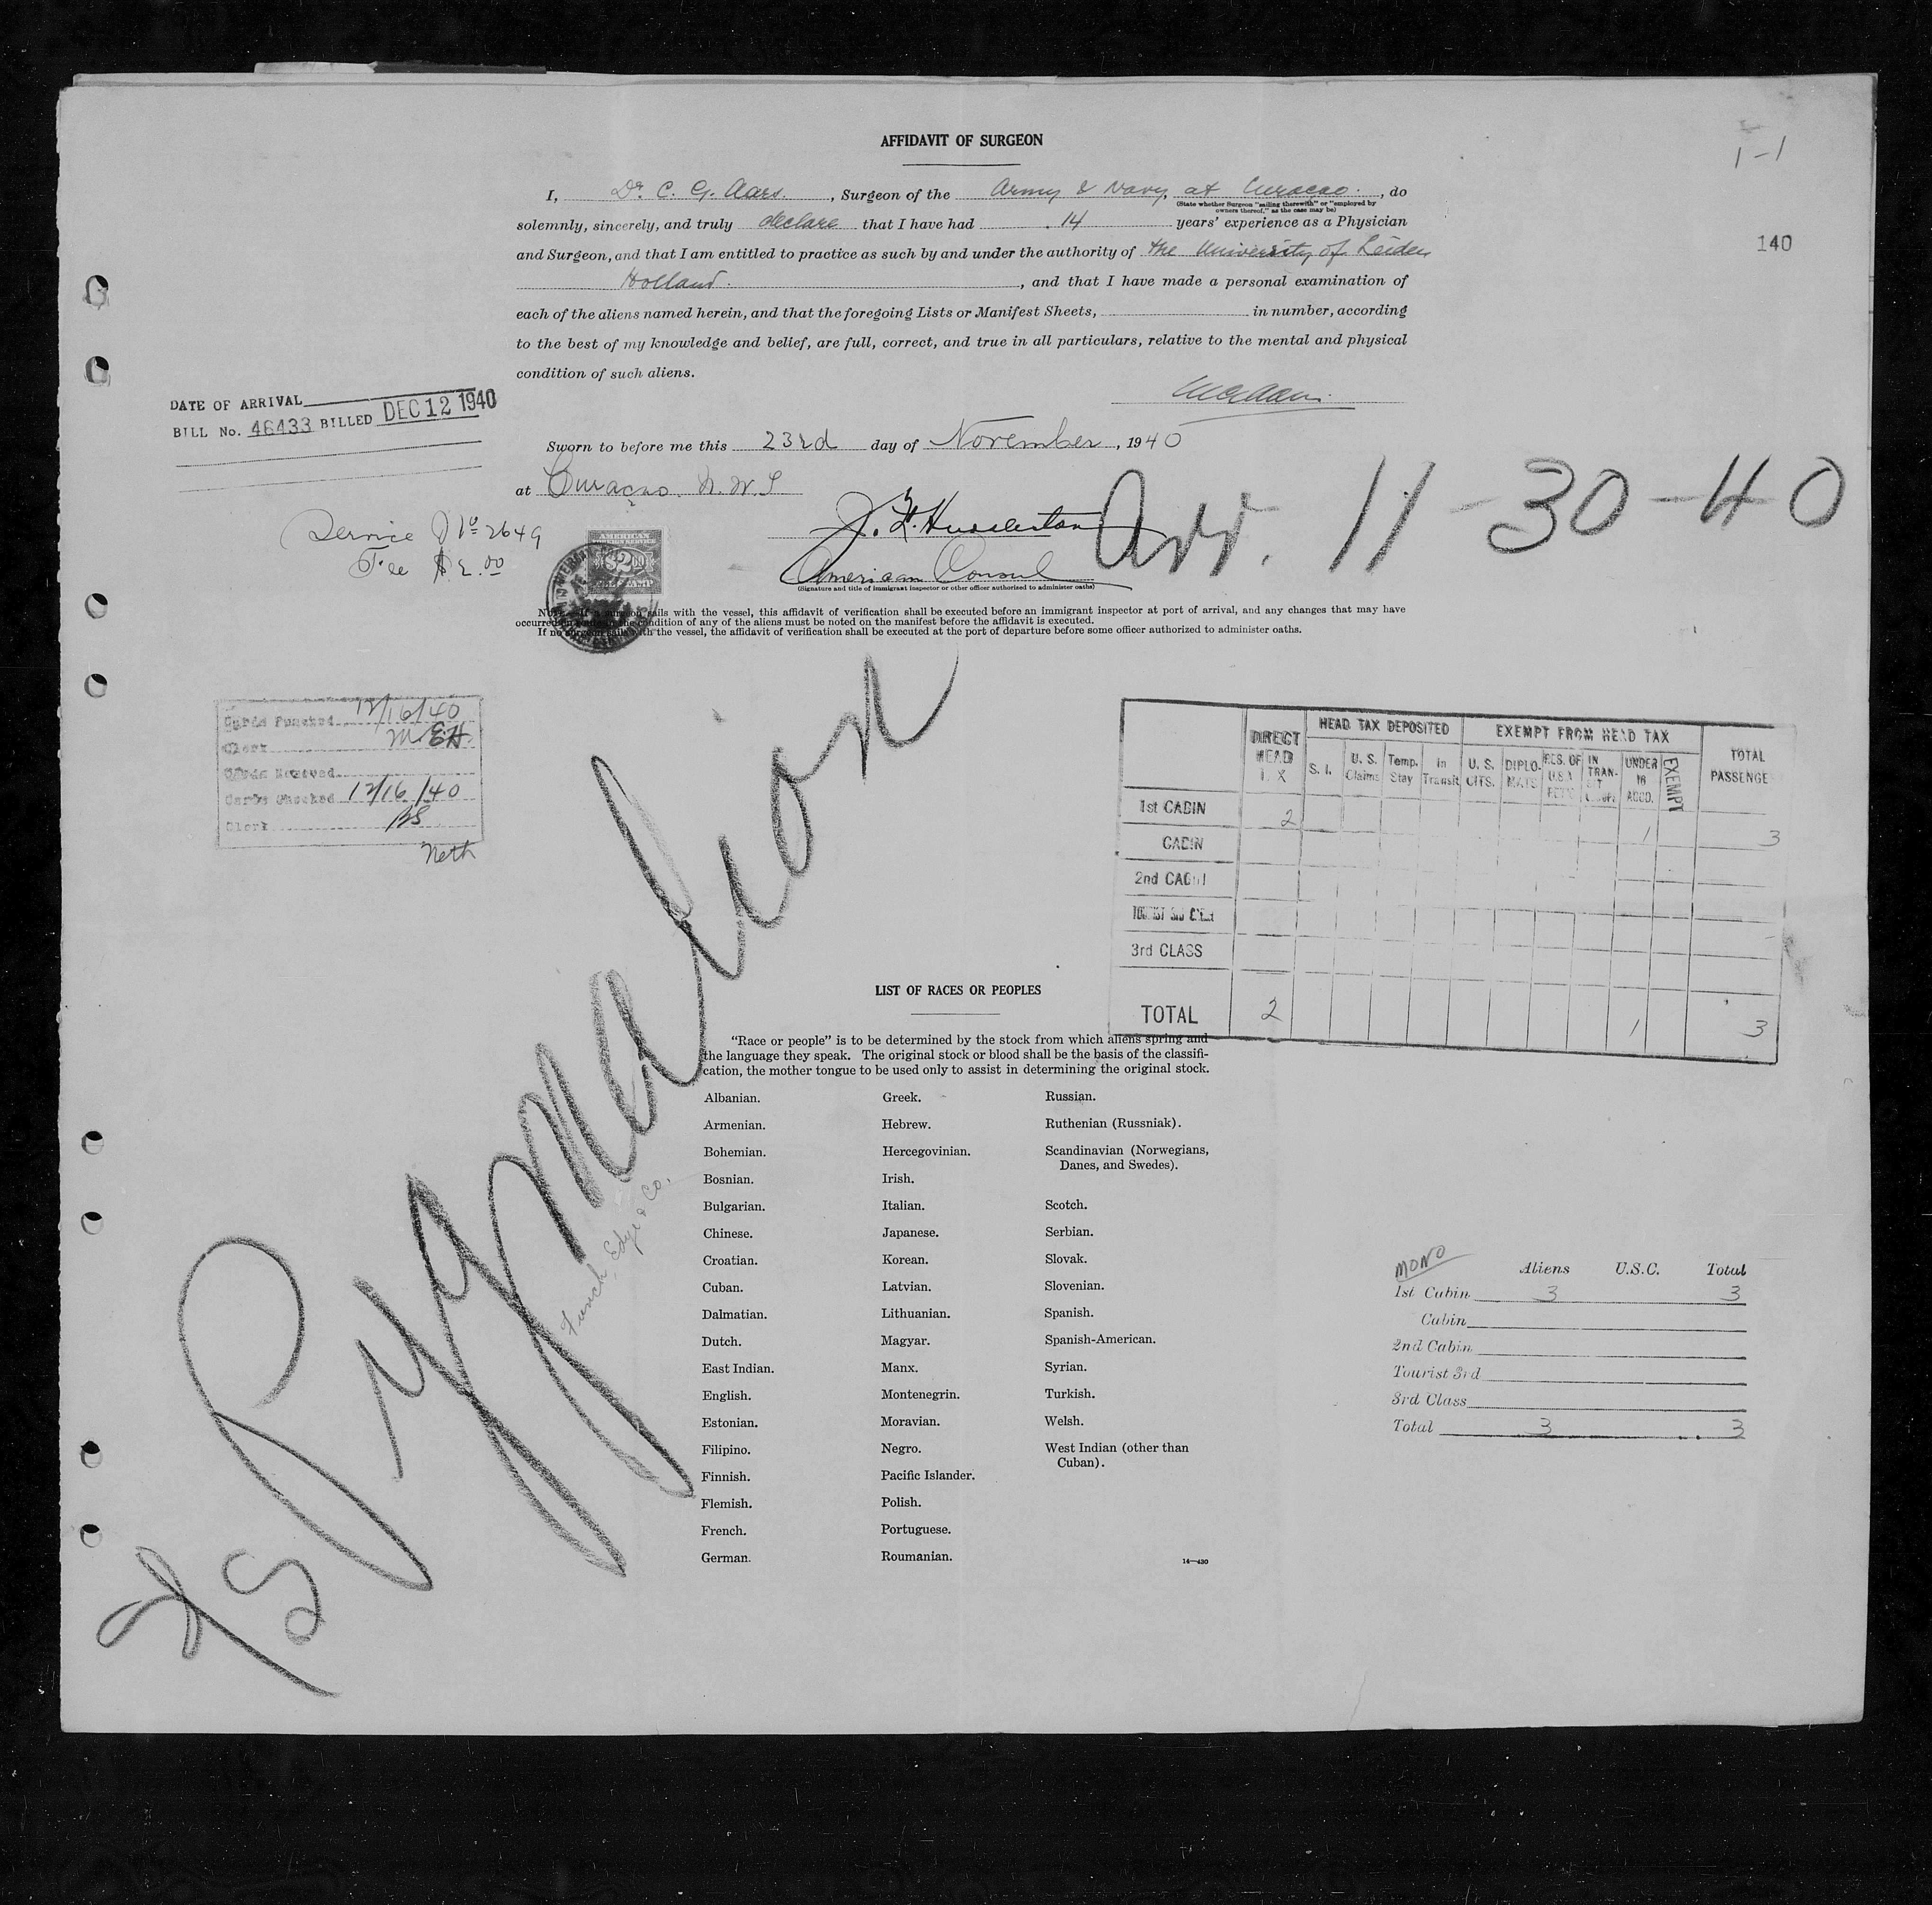 AFFIDAVIT OF SURGEON
1-1
I, Dr. C. G. Aars., Surgeon of the Army & Navy, at Curacao., do
(State whether Surgeon "sailing therewith" or "employed by
owners thereof," as the case may be)
solemnly, sincerely, and truly declare that I have had 14 years' experience as a Physician
140
and Surgeon, and that I am entitled to practice as such by and under the authority of the University of Leiden
Holland., and that I have made a personal examination of
each of the aliens named herein, and that the foregoing Lists or Manifest Sheets, in number, according
to the best of my knowledge and belief, are full, correct, and true in all particulars, relative to the mental and physical
condition of such aliens.
DATE OF ARRIVAL
BILL No. 46433 BILLED DEC 12 1940
Sworn to before me this 23rd day of November, 1940
at Curaçao. N. W. I
Arr. 11-30-40
Service No 2649
Fee $2.00
AMERICAN
FOREIGN SERVICE
$2.00
FEE STAMP
American Consul
(Signature and title of immigrant inspector or other officer authorized to administer oaths)
Note.—If a surgeon sails with the vessel, this affidavit of verification shall be executed before an immigrant inspector at port of arrival, and any changes that may have
occurred in the condition of any of the aliens must be noted on the manifest before the affidavit is executed.
If no surgeon sails with the vessel, the affidavit of verification shall be executed at the port of departure before some officer authorized to administer oaths.
Cards Punched 12/16/40
Clerk M. EH
Cards Removed
Cards Checked 12/16/40
Clerk BS
Neth
SS Pygmalion
Funch Edye & Co.
DIRECT HEAD TAX
HEAD TAX DEPOSITED
EXEMPT FROM HEAD TAX
TOTAL PASSENGE
S. I.
U. S. Claims
Temp. Stay
In Transit
U. S. CITS.
DIPLO-MATS
RES. OF U.S.A.
IN TRAN-SIT
UNDER 16 ACCD.
EXEMPT
1st CABIN 2 1 3
CABIN
2nd CABIN
TOURIST 3rd
3rd CLASS
TOTAL 2 1 3
LIST OF RACES OR PEOPLES
"Race or people" is to be determined by the stock from which aliens spring and
the language they speak. The original stock or blood shall be the basis of the classifi-
cation, the mother tongue to be used only to assist in determining the original stock.
Albanian.
Armenian.
Bohemian.
Bosnian.
Bulgarian.
Chinese.
Croatian.
Cuban.
Dalmatian.
Dutch.
East Indian.
English.
Estonian.
Filipino.
Finnish.
Flemish.
French.
German.
Greek.
Hebrew.
Hercegovinian.
Irish.
Italian.
Japanese.
Korean.
Latvian.
Lithuanian.
Magyar.
Manx.
Montenegrin.
Moravian.
Negro.
Pacific Islander.
Polish.
Portuguese.
Roumanian.
Russian.
Ruthenian (Russniak).
Scandinavian (Norwegians,
Danes, and Swedes).
Scotch.
Serbian.
Slovak.
Slovenian.
Spanish.
Spanish-American.
Syrian.
Turkish.
Welsh.
West Indian (other than
Cuban).
14—430
MONO
Aliens U.S.C. Total
1st Cabin 3 3
Cabin
2nd Cabin
Tourist 3rd
3rd Class
Total 3 3